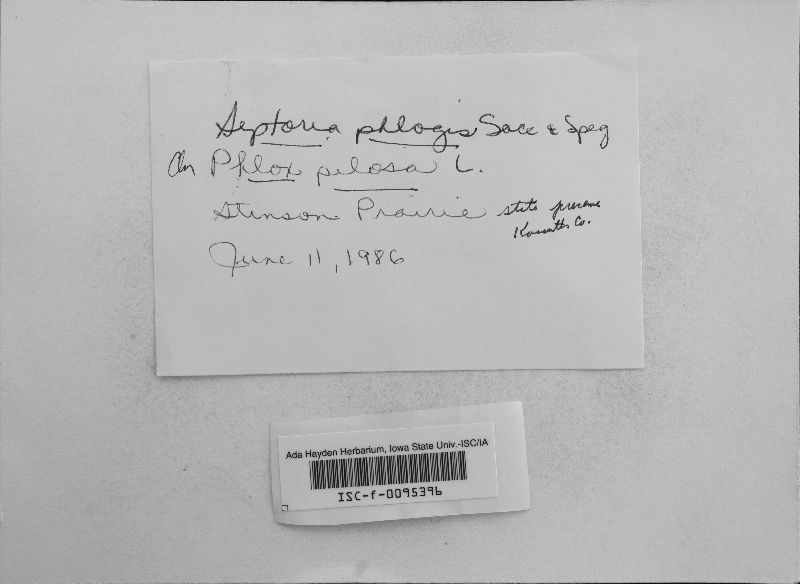 Septoria phlogis Sacc & Speg
On Phlox pilosa L.
Stinson Prairie state preserve
Kossuth Co.
June 11, 1986
Ada Hayden Herbarium, Iowa State Univ.-ISC/IA
ISC-f-0095396